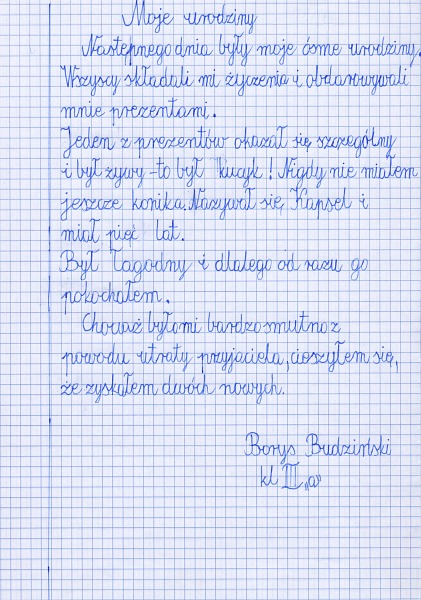 Moje urodziny
Następnego dnia były moje ósme urodziny.
Wszyscy składali mi życzenia i obdarowywali
mnie prezentami.
Jeden z prezentów okazał się szczególny
i był żywy - to był kucyk! Nigdy nie miałem
jeszcze konika. Nazywał się Kapsel i
miał pięć lat.
Był łagodny i dlatego od razu go
pokochałem.
Chociaż było mi bardzo smutno z
powodu utraty przyjaciela, cieszyłem się,
że zyskałem dwóch nowych.
Borys Budziński
kl III „a"